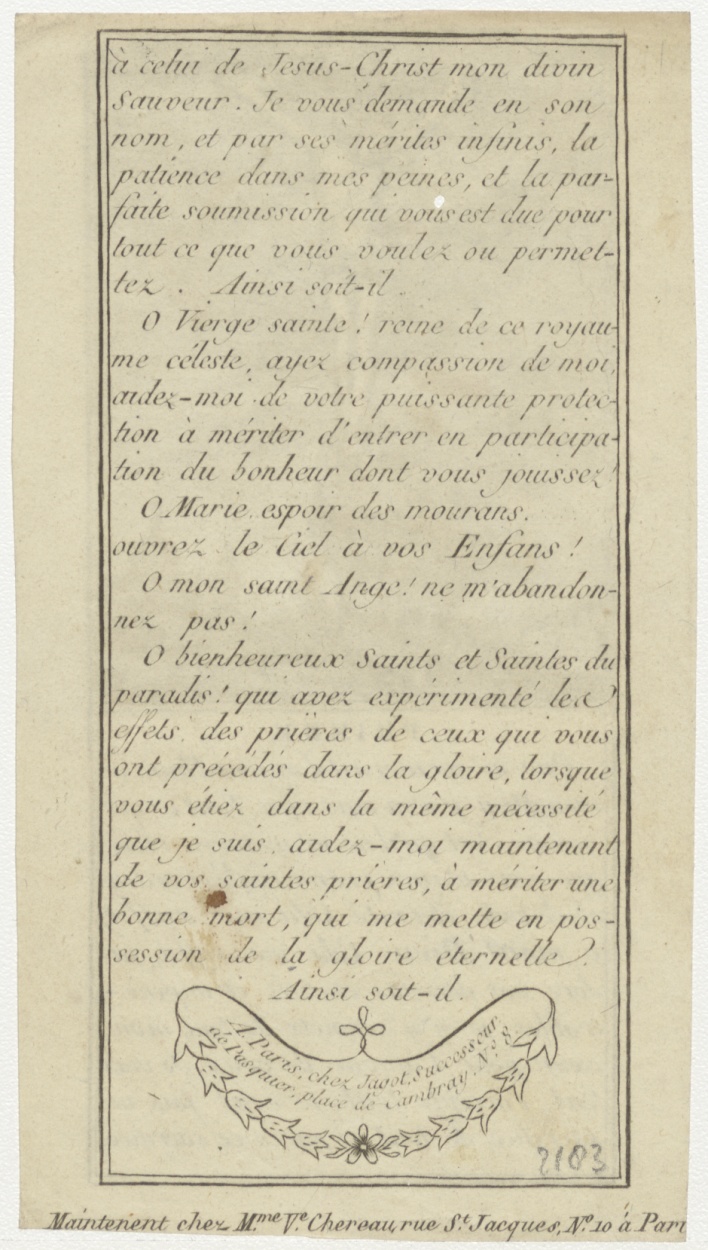 à celui de Jesus-Christ mon divin
Sauveur. Je vous demande en son
nom, et par ses mérites infinis, la
patience dans mes peines, et la par-
faite soumission qui vous est due pour
tout ce que vous voulez ou permet-
tez. Ainsi soit-il.
O Vierge sainte! reine de ce royau-
me céleste, ayez compassion de moi,
aidez-moi de votre puissante protec-
tion à mériter d'entrer en participa-
tion du bonheur dont vous jouissez!
O Marie espoir des mourans,
ouvrez le Ciel à vos Enfans!
O mon saint Ange! ne m'abandon-
nez pas!
O bienheureux Saints et Saintes du
paradis! qui avez expérimenté les
effets des prières de ceux qui vous
ont précédés dans la gloire, lorsque
vous étiez dans la même nécessité
que je suis, aidez-moi maintenant
de vos saintes prières, à mériter une
bonne mort, qui me mette en pos-
session de la gloire éternelle.
Ainsi soit-il.
A Paris, chez Jagot, Successeur
de Pasquier, place de Cambray, N.º 8.
2103
Maintenent chez M.me V.e Chereau, rue S.t Jacques, N.º 10 à Pari